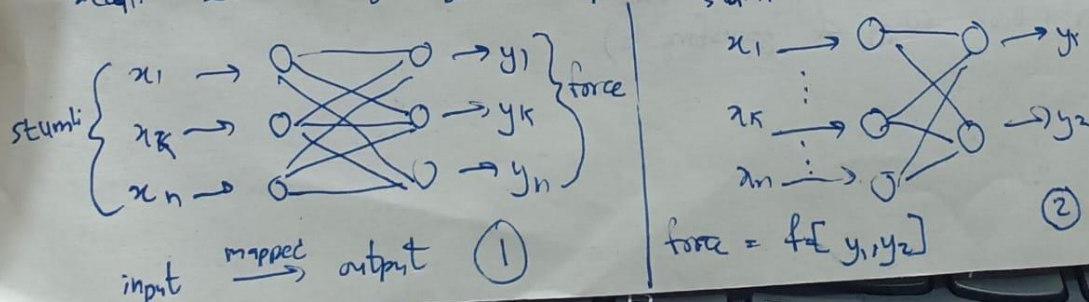 x1 → → y1
stumli xk → → yk force
xn → → yn
input mapped → output 1
x1 →
xk → → y2
xn →
force = f[ y1, y2 ]
2